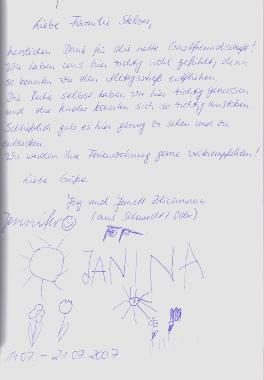 Liebe Familie Stelzer,
herzlichen Dank für die nette Gastfreundschaft!
Wir haben uns hier richtig wohl gefühlt, denn
so konnten wir dem Alltagsstreß entfliehen.
Die Ruhe selbst haben wir hier richtig genossen
und die Kinder konnten sich so richtig austoben.
Schließlich gab es hier genug zu sehen und zu
entdecken.
Wir werden Ihre Ferienwohnung gerne weiterempfehlen!
Liebe Grüße
Jörg und Jeanett
(aus Schwedt/Oder)
Jennifer
JANINA
14.07. - 21.07.2007